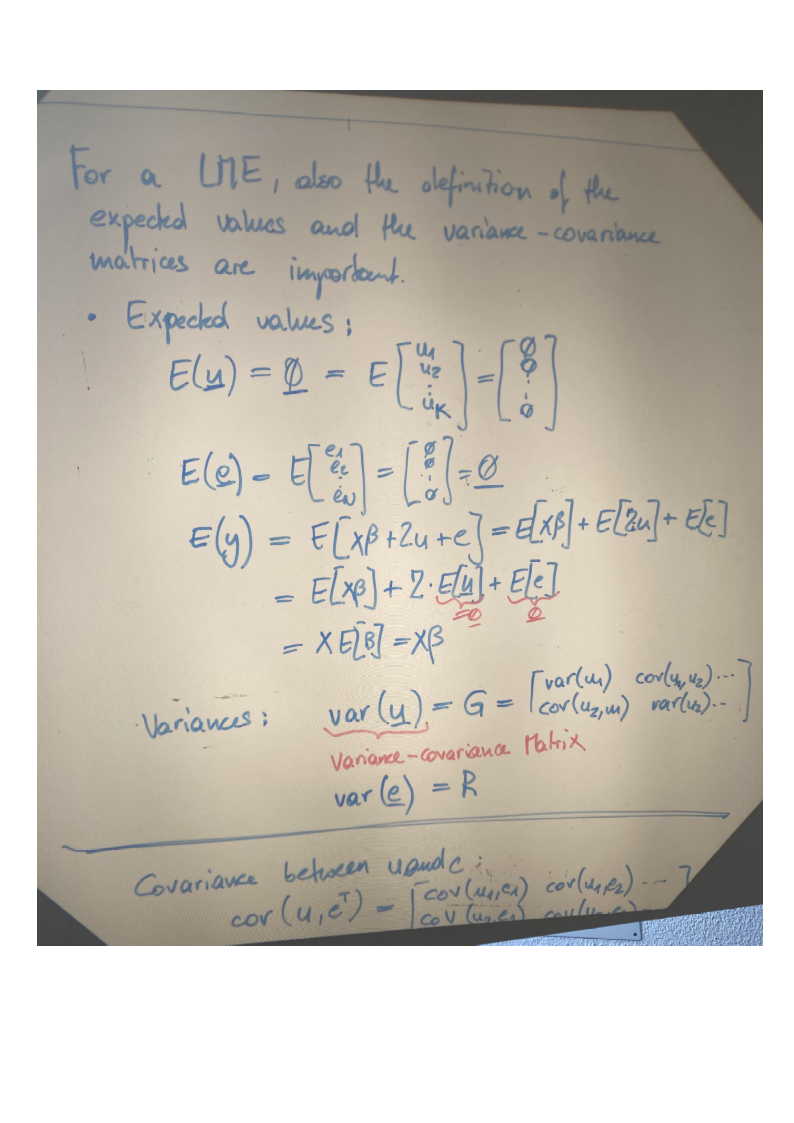 For a LME, also the definition of the
expected values and the variance-covariance
matrices are important.
• Expected values:
E(u) = 0 = E [u1 u2 ⋮ uK] = [0 0 ⋮ 0]
E(e) = E [e1 e2 ⋮ eN] = [0 0 ⋮ 0] = 0
E(y) = E[Xβ + Zu + e] = E[Xβ] + E[Zu] + E[e]
= E[Xβ] + Z · E[u] + E[e]
=0 0
= X E[β] = Xβ
Variances: var(u) = G = [var(u1) cov(u1,u2) ... cov(u2,u1) var(u2) ..]
Variance-covariance Matrix
var(e) = R
Covariance between u and e:
cov(u, eT) = [cov(u1,e1) cov(u1,e2) ...
cov(u2,e1)